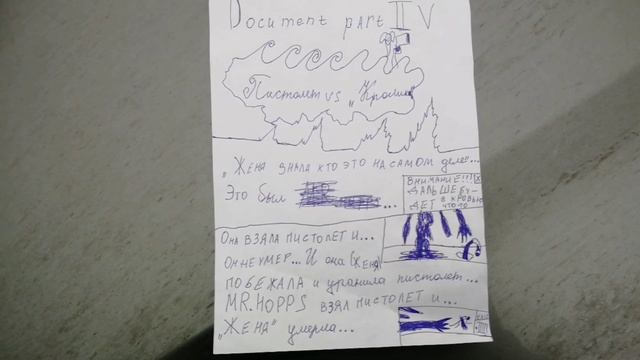 Document part IV
Пистолет vs „Кролик"
„Жена знала кто это на самом деле"...
Это был ...
ВНИМАНИЕ!!!
ДАЛЬШЕ БУ-
ДЕТ
Она взяла пистолет и...
Он не умер... И она (жена)
побежала и уранила пистолет...
MR.HOPPS взял пистолет и...
„Жена" умерла...